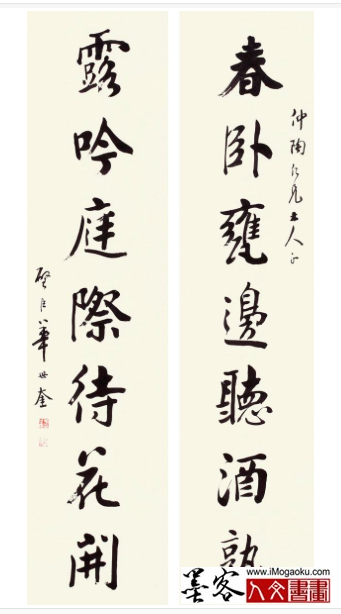 仲陶仁兄大人正
春卧甕邊聽酒熟
露吟庭際待花開
璧臣華世奎
墨客
www.iMogaoku.com
人文書畫